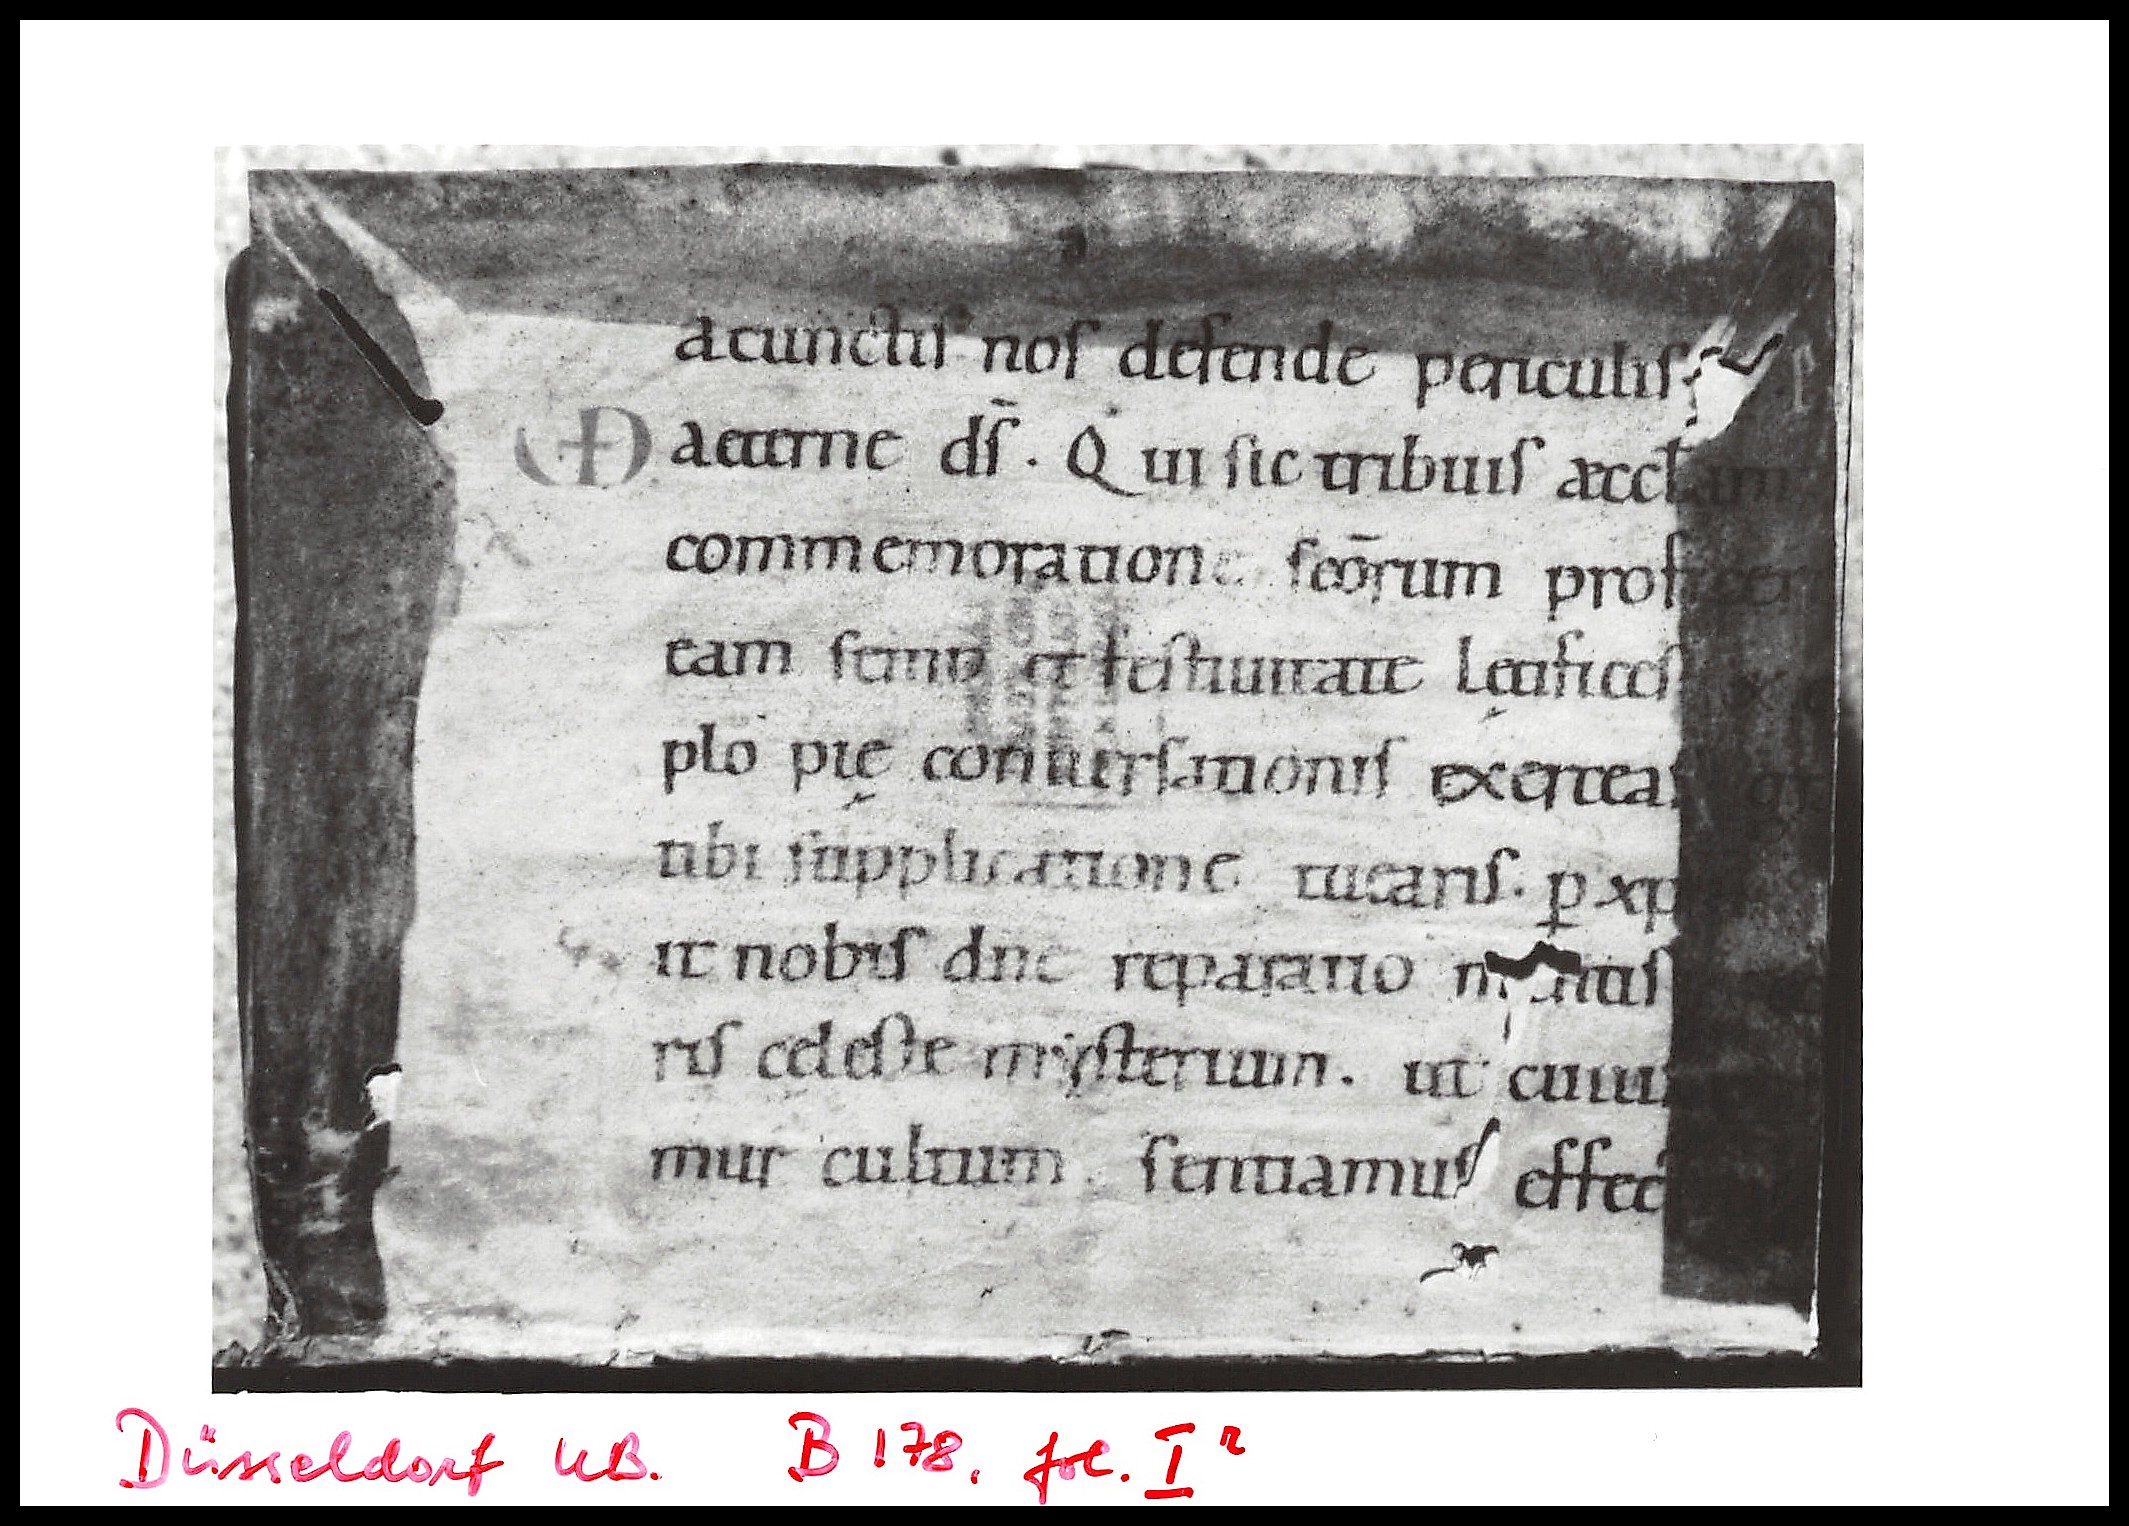 acunctis nos defende periculis.
aeterne ds̄. Qui sic tribuis æccl̄am
commemoratione scōrum prof
eam semp et festiuitate lętifices
plo pię conuersationis exerceas
tibi supplicatione tuearis. p̲ xp
it nobis dne reparatio mentis
ris celeste mysterium. ut cuius
mur cultum sentiamus effec
Düsseldorf UB. B 178, fol. Iʳ